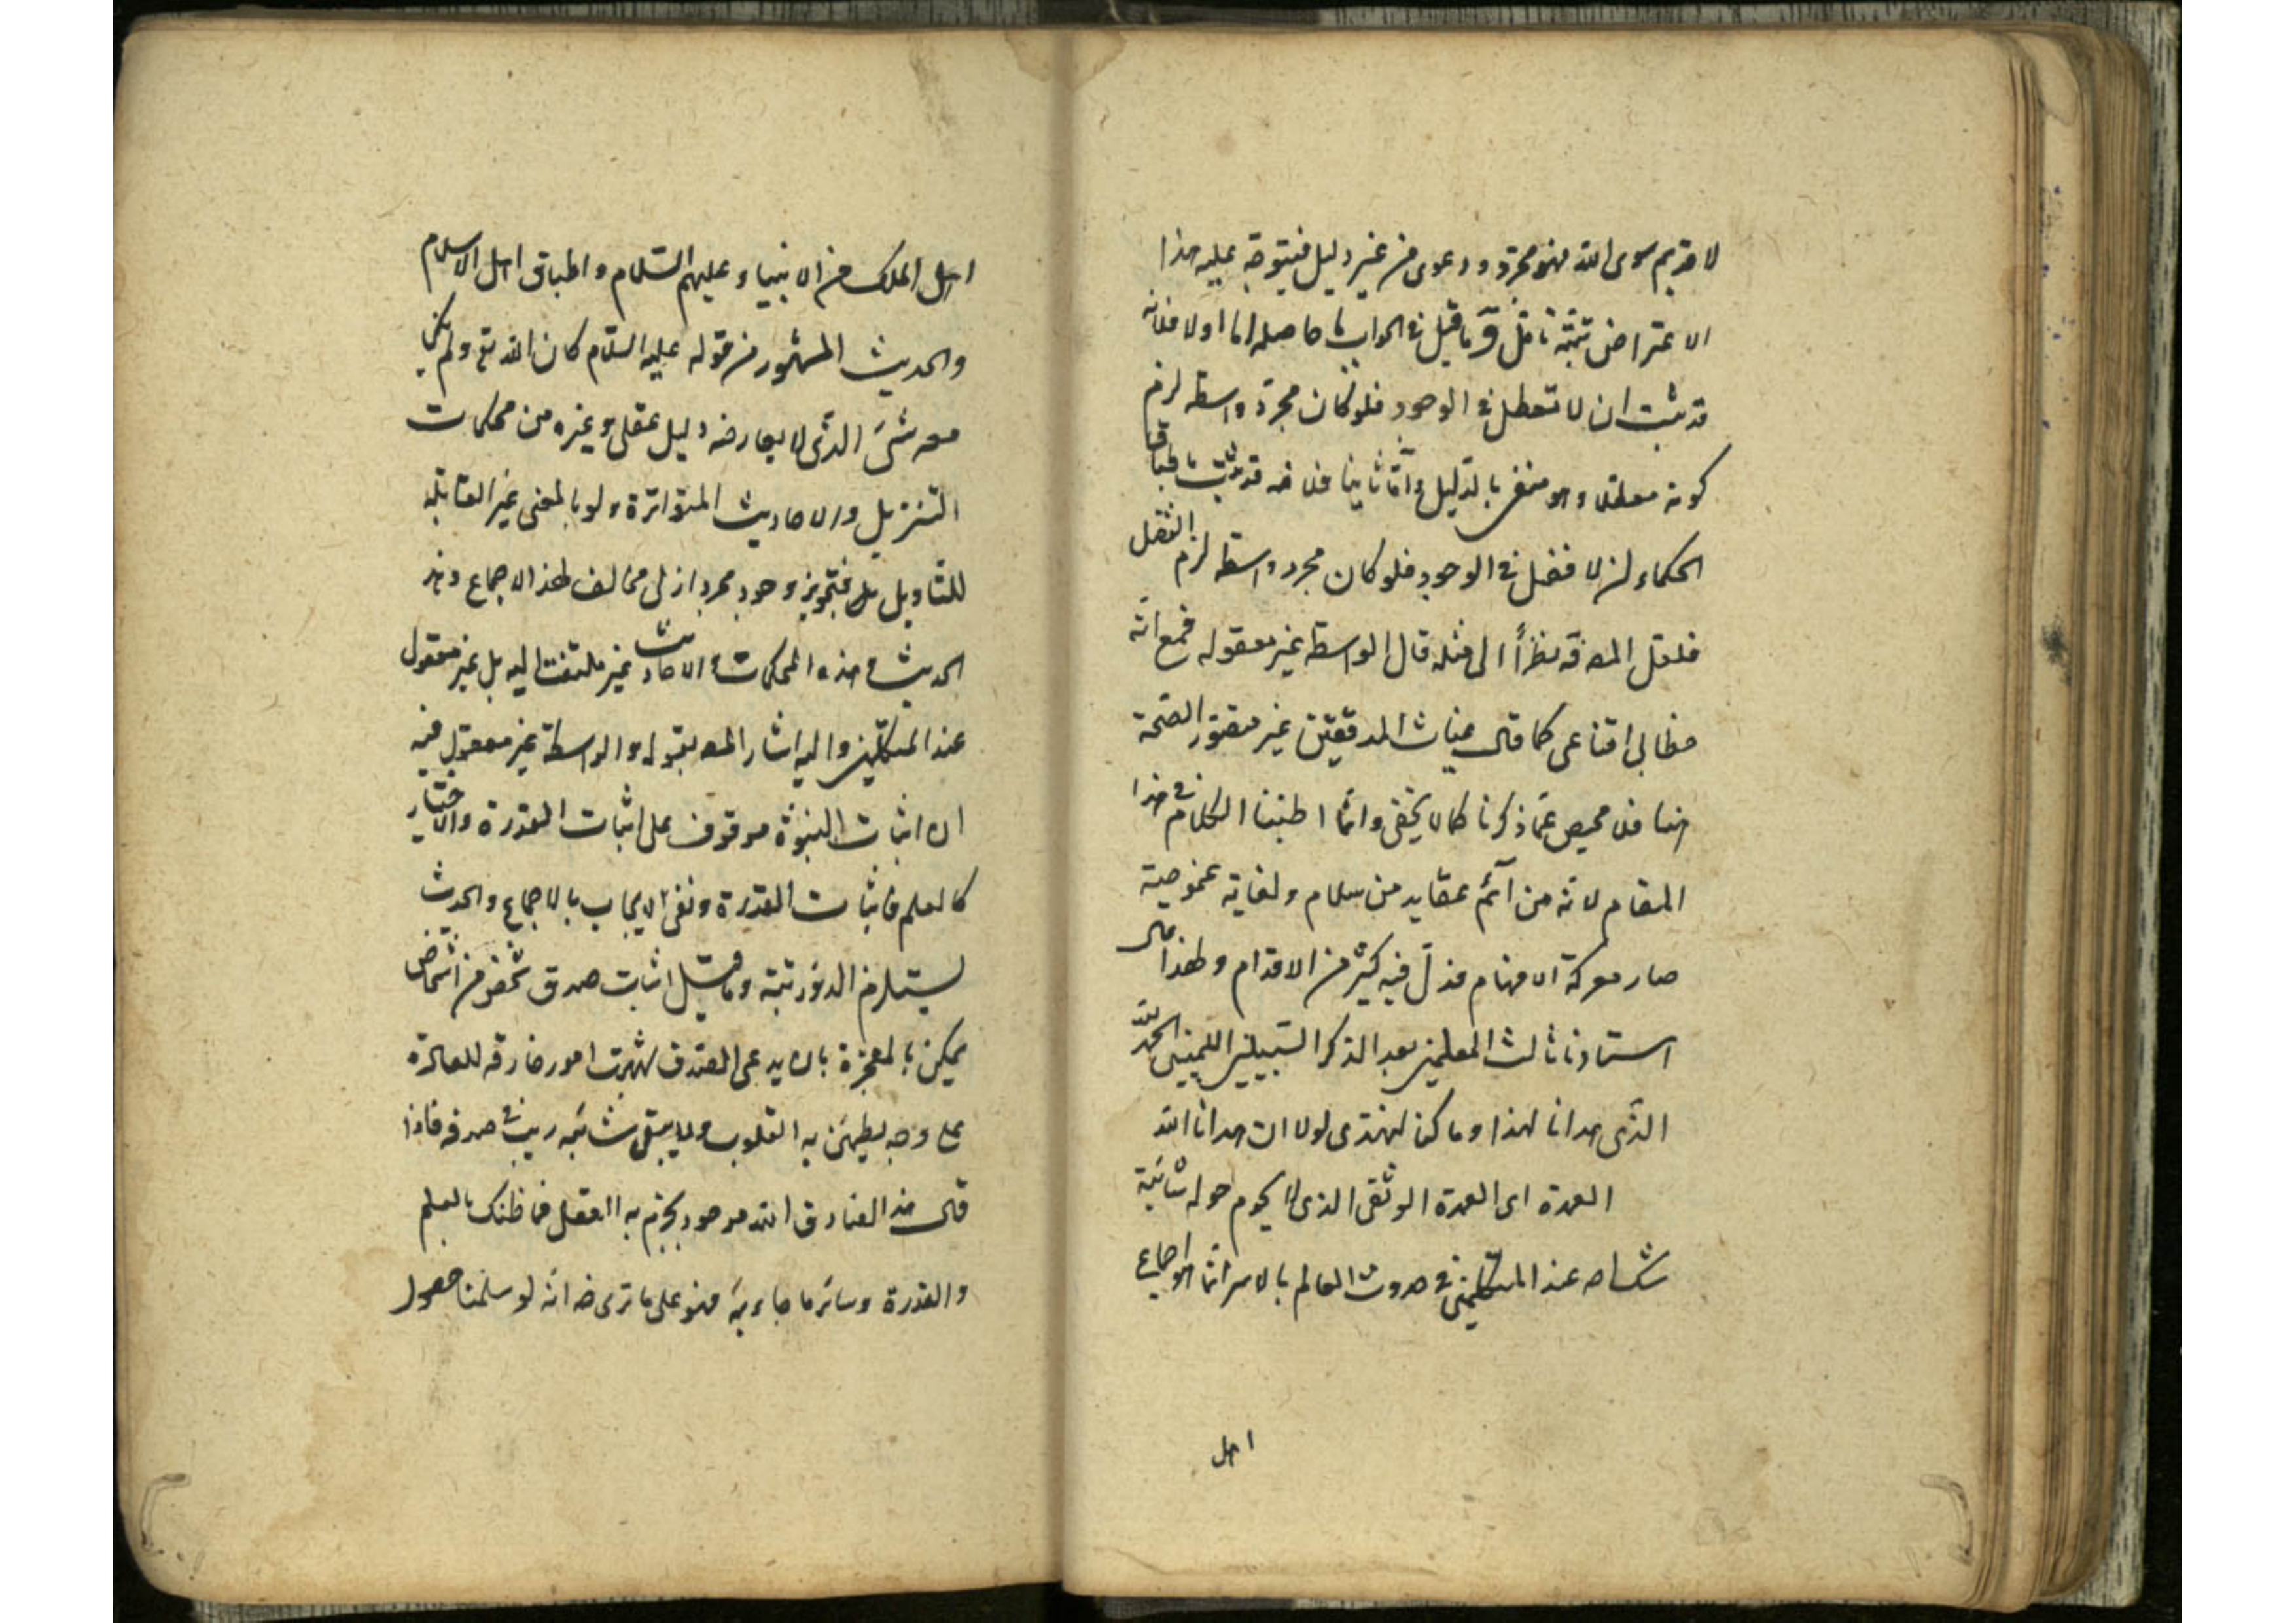 لا قديم سوى الله فهو مجرد ودعوى من غير دليل فيتوجه عليه هذا
الاعتراض تتمة تأمل وما قيل في الجواب ما حاصله اما اولا فلانه
قد ثبت ان لا تعطل في الوجود فلو كان مجرد واسطة لزم
كونه معطلا وهو منفى بالدليل واما ثانيا فلانه قد ثبت باطباق
الحكماء ان لا فضل في الوجود فلو كان مجرد واسطة لزم الفضل
فلعل المصنف نظراً الى مثله قال الواسطة غير معقوله فمع انه
خطابى اقناعى كما قال غياث المدققين غير متصور الصحة
هنا فلا محيص عما ذكرنا كما لا يخفى وانما اطنبنا الكلام في هذا
المقام لانه من اتم عقايد من سلام ولغاية غموضيته
صار معركة الافهام فزل فيه كثير من الاقدام ولهذا قال
استادنا ثالث المعلمين بعد الذكر السبيلين الحمد لله
الذى هدانا لهذا وما كنا لنهتدى لولا ان هدانا الله
العمدة اى العمدة الوثقى الذى لا يحوم حوله شائبة
شك عند المتكلمين في حدوث العالم بالاسر انما هو اجماع
اهل
اهل الملل من الانبياء عليهم السلام واطباق اهل الاسلام
والحديث المشهور من قوله عليه السلام كان الله تع ولم يكن
معه شئ الذى لا يعارضه دليل عقلى وغيره من محكمات
التنزيل والاحاديث المتواترة ولو بالمعنى غير القابلة
للتأويل بل فتجويز وجود مجرد ازلى مخالف لهذا الاجماع وهذ
الحديث وهذه المحكمات والاحاديث غير ملتفت اليه بل غير معقول
عند المتكلمين واليه اشار المص بقوله والواسطة غير معقول فيه
ان اثبات النبوة موقوف على اثبات القدرة والاختيار
كالعلم فاثبات القدرة ونفى الايجاب بالاجماع والحديث
يستلزم الدور تتمة وما قيل اثبات صدق شخص من اشخاص
يمكن بالمعجزة بان يدعى الصدق امور خارقه للعادة
على وجه يطمئن به القلوب ولا يبقى شائبه ريب في صدقه فاذا
قال هذا الصادق الله موجود يجزم به العقل فما ظنك بالعلم
والقدرة وسائر ما جاء به فهو على ما ترى ضه انه لو سلمنا حصول